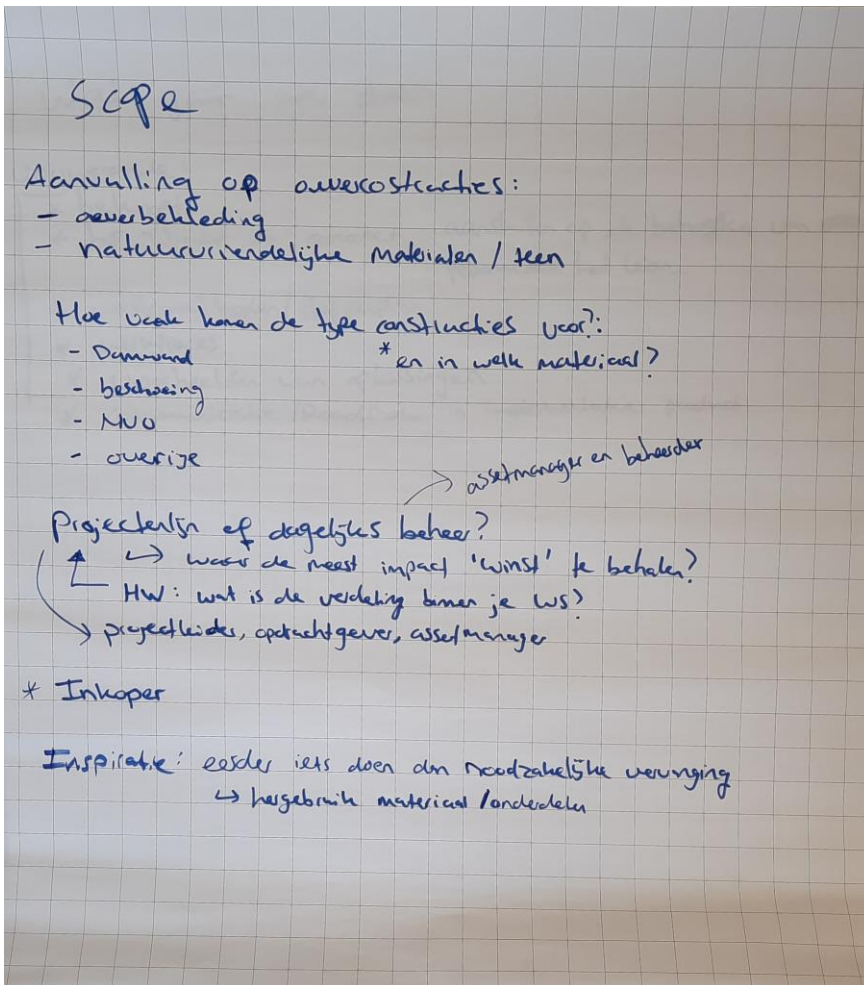 Scope
Aanvulling op oevercostructies:
- oeverbekleding
- natuurvriendelijke materialen / teen
Hoe vaak komen de type constructies voor?:
- Damwand
* en in welk materiaal?
- beschoeiing
- NVO
- overige
assetmanager en beheerder
Projectenlijn of dagelijks beheer?
↳ waar de meest impact 'winst' te behalen?
HW: wat is de verdeling binnen je WS?
projectleider, opdrachtgever, assetmanager
* Inkoper
Inspiratie: eerder iets doen dan noodzakelijke vervanging
↳ hergebruik materiaal / onderdelen